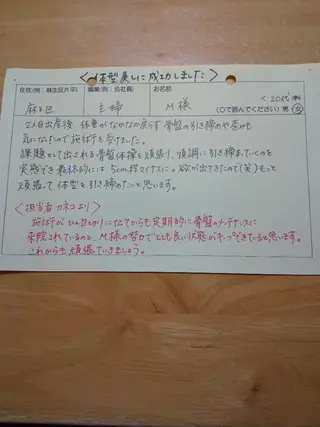 ＜体型戻しに成功しました＞
在住(例：麻生区片平) 職業(例：会社員) お名前
麻生区 主婦 M様 ＜20代＞
(○で囲んでください) 男 女
2人目出産後 体重がなかなか戻らず 骨盤の引き締めや歪みも
気になたので施術を受けました。
課題として出される骨盤体操を頑張り、順調に引き締まっていくのを
実感でき 最終的には 5cm程マイナスに。欲が出てきたので(笑)もっと
頑張って体型を引き締めたいと思います。
＜担当者 カネコより＞
施術がひと区切りになってからも定期的に骨盤のメンテナンスに
来院されているのと、M様の努力でとても良い状態がキープできていると思います。
これからも頑張っていきましょう。